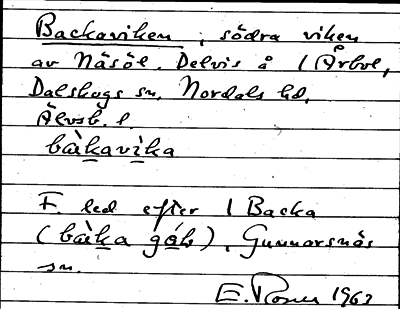 Backaviken, södra viken
av Näsöl. Delvis å 1 Årbol,
Dalskogs sn, Nordals hd,
Älvsb. l.
bàkavìka
F. led efter 1 Backa
(bàka gáḷ), Gunnarsnäs
sn.
E. 1963